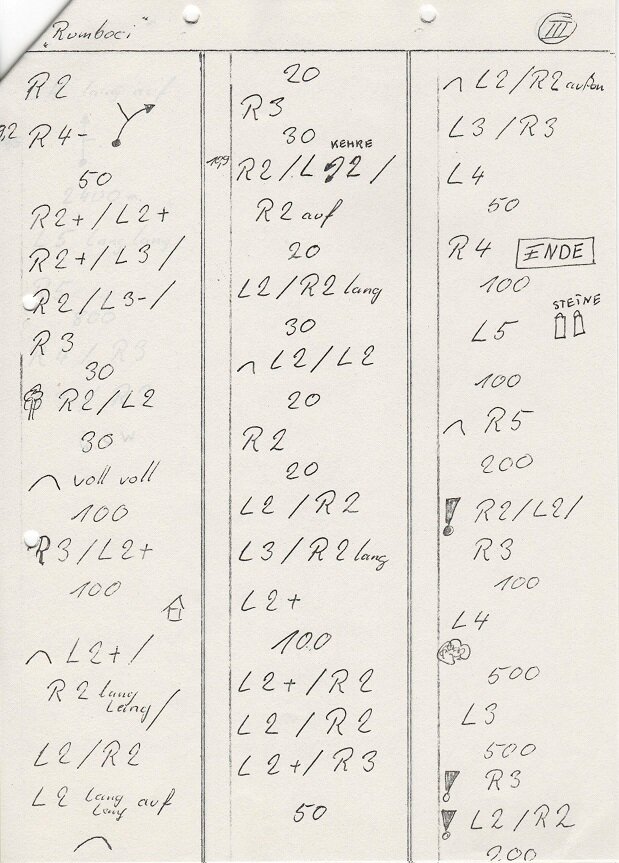 "Rumboci"
III
R2
R4-
50
R2+/L2+
R2+/L3/
R2/L3-/
R3
30
R2/L2
30
voll voll
100
R3/L2+
100
L2+/
R2 lang
lang/
L2/R2
L2 lang
lang auf
20
R3
30
KEHRE
19,9 R2/L2/
R2 auf
20
L2/R2 lang
30
L2/L2
20
R2
20
L2/R2
L3/R2 lang
L2+
100
L2+/R2
L2/R2
L2+/R3
50
L2/R2 außen
L3/R3
L4
50
R4 ENDE
100
STEINE
L5
100
R5
200
R2/L2/
R3
100
L4
500
L3
500
R3
L2/R2
200